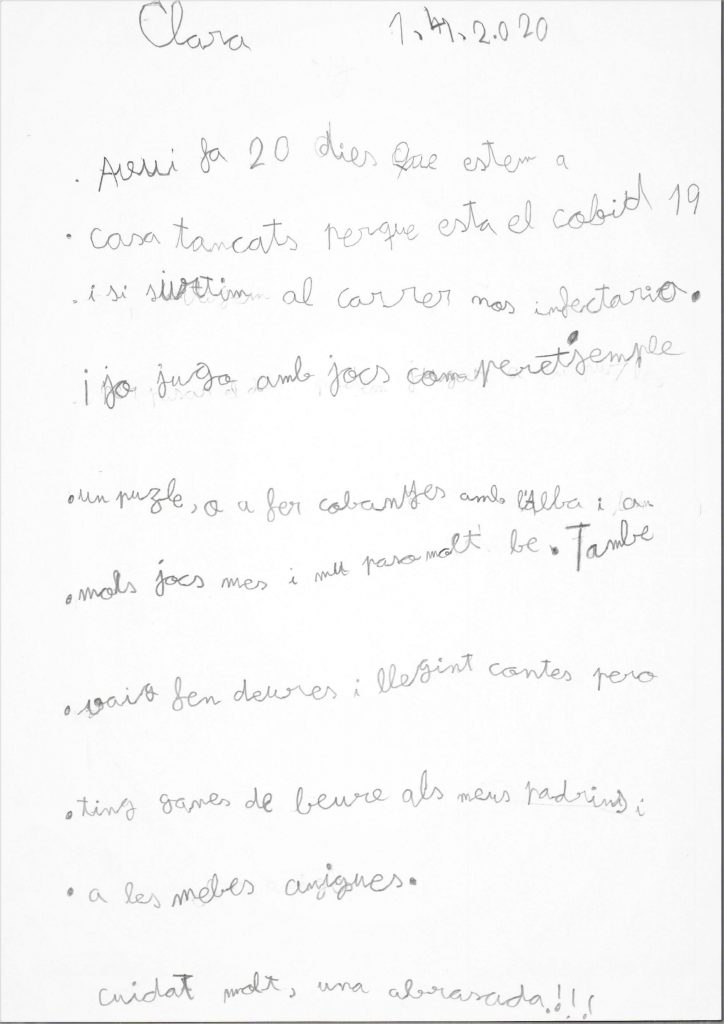 Clara 1.4.2.020
. Avui fa 20 dies Que estem a
. casa tancats perque esta el cobid 19
. i si surtim al carrer nos infectario.
i jo jugo amb jocs com peretjemple
. un puzle, o a fer cobanyes amb l'Alba i an
. mols jocs mes i mu paso molt be. Tambe
. vaig fen deures i llegint contes pero
. ting ganes de beure als meus padrins i
. a les mebes amigues.
cuidat molt, una abrasada!!!